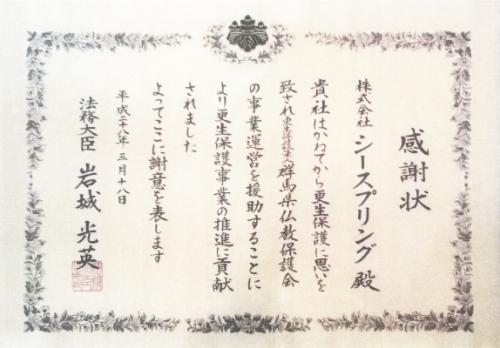 感謝状
株式会社 シースプリング 殿
貴社はかねてから更生保護に思いを
致され更生保護法人群馬県仏教保護会
の事業運営を援助することに
より更生保護事業の推進に貢献
されました
よってここに謝意を表します
平成二十八年 三月十八日
法務大臣 岩城 光英